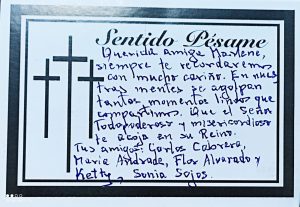 Sentido Pésame
Querida amiga Marlene,
siempre te recordaremos
con mucho cariño. En nues
tras mentes se agolpan
tantos momentos lindos que
compartimos. Que el Señor
Todopoderoso y misericordioso
te acoja en su Reino.
Tus amigos: Carlos Cabrera,
Maria Andrade, Flor Alvarado y
Ketty, Sonia Sojos.